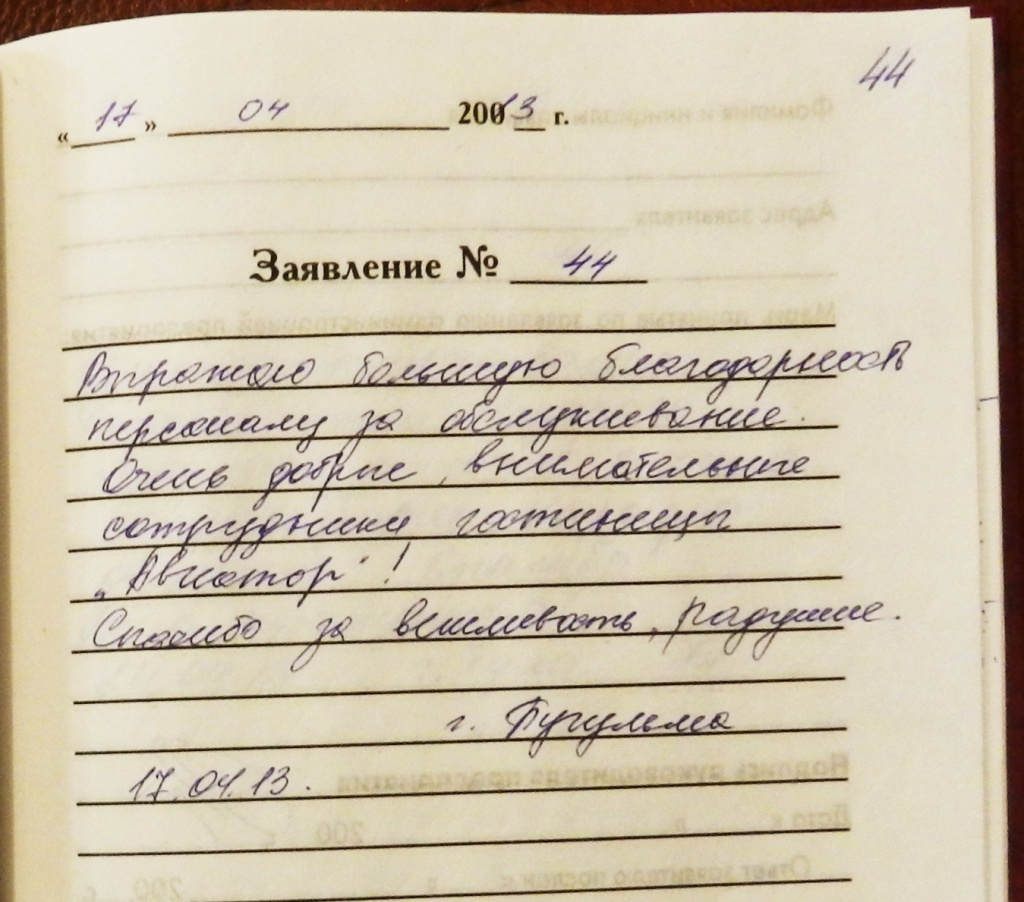 44
« 17 » 04 2003 13 г.
Заявление № 44
Выражаю большую благодарность
персоналу за обслуживание.
Очень добрые, внимательные
сотрудники гостиницы
„Авиатор"!
Спасибо за вежливость, радушие.
г. Бугульма
17.04.13.